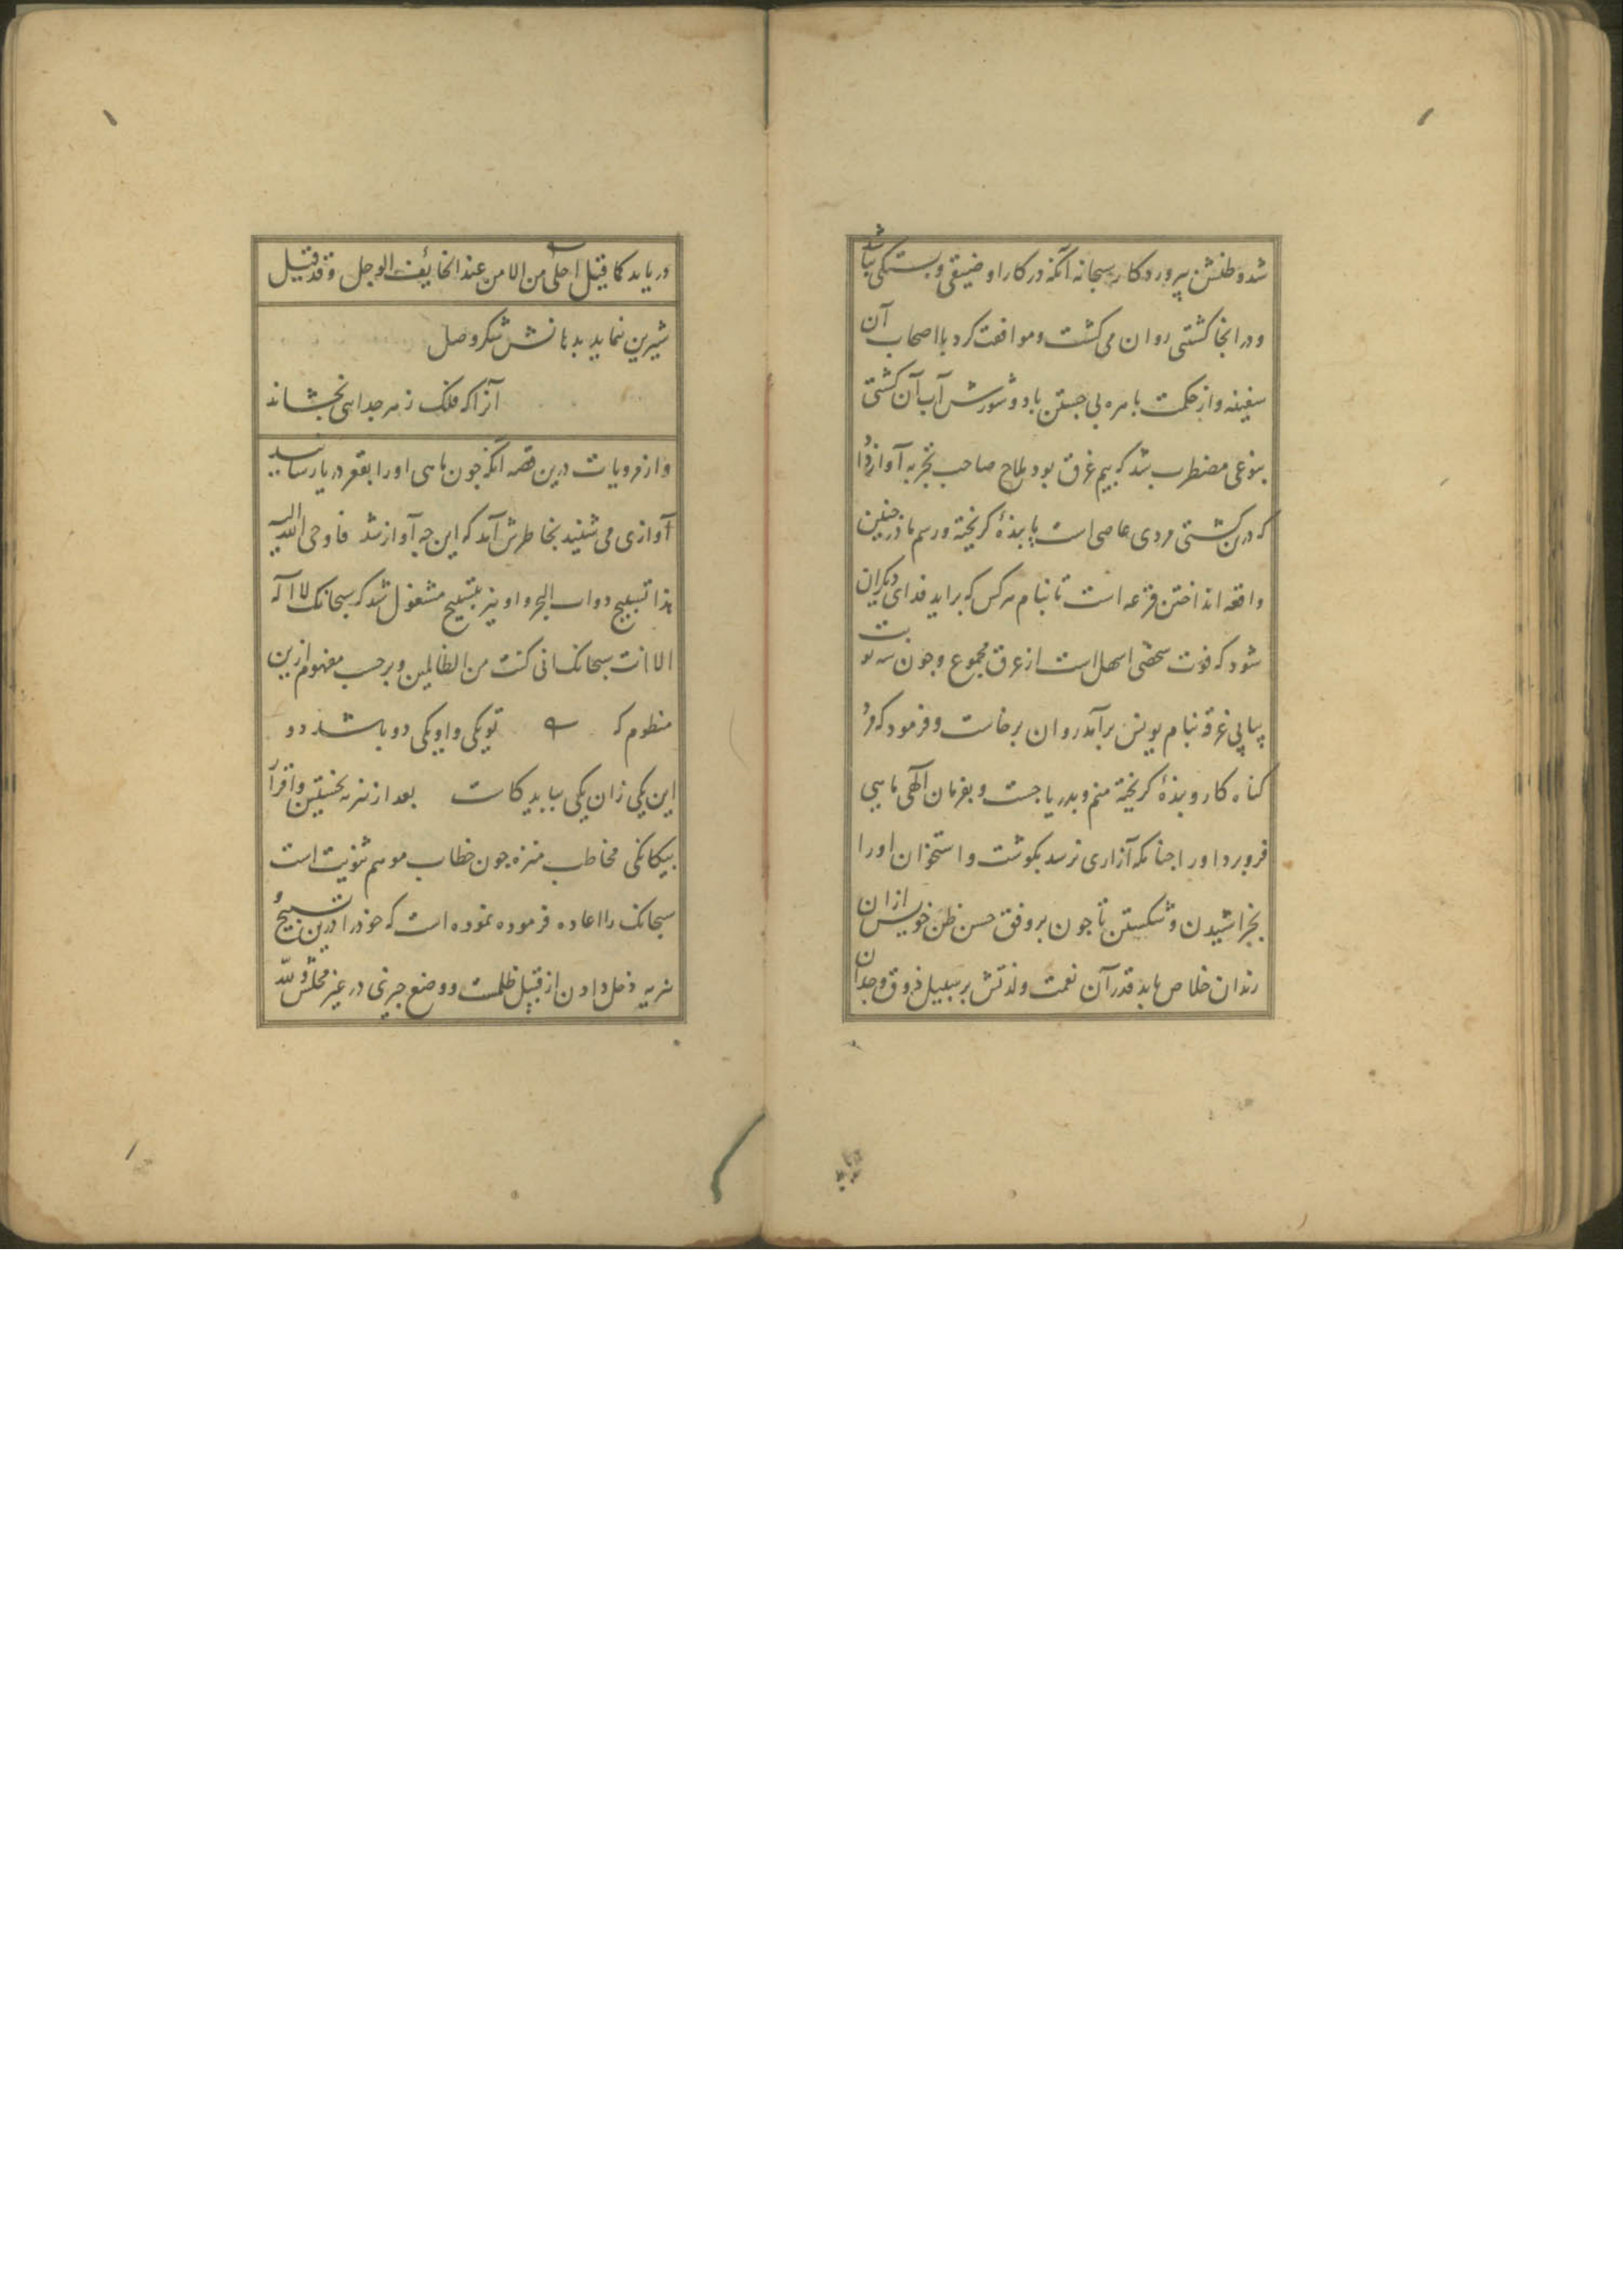 شد و ظنش بپروردکار سبحانه آنکه در کار او ضیقی و بستکی نباشد
و در انجا کشتی روان می کشت و موافقت کرد با اصحاب آن
سفینه و از حکمت باهره بی جستن باد و شورش آب آن کشتی
بنوعی مضطرب شد که بیم غرق بود ملاح صاحب تجربه آواز داد
که درین کشتی مردی عاصی است یا بندهٔ کریخته و رسم ما در چنین
واقعه انداختن قرعه است تا بنام هرکس که براید فدای دیکران
شود که فوت شخصی اسهل است از غرق مجموع و چون سه نوبت
پیاپی قرعه بنام یونس برآمد روان برخاست و فرمود که مرد
کناه کار و بندهٔ کریخته منم و بدریا جست و بفرمان آلهی ماهیی
فرو برد او را چنانکه آزاری نرسد بکوشت و استخوان او را
بخراشیدن و شکستن تا چون بر وفق حسن ظن خویش از ان
زندان خلاص یابد قدر آن نعمت و لذتش بر سبیل ذوق و وجدان
دریابد کما قیل احلی من الامن عند الخایف الوجل و قد قیل
شیرین نماید بدهانش شکر وصل
آنرا که فلک زهر جدایی بچشاند
و از مرویات درین قصه آنکه چون ماهی او را بقعر دریا رسانید
آوازی می شنید بخاطرش آمد که این چه آواز شد فاوحی الله الیه
هذا تسبیح دواب البحر و او نیز بتسبیح مشغول شد که سبحانک لا اله
الا انت سبحانک انی کنت من الظالمین و برحسب مفهوم ازین
منظوم که تو یکی و او یکی دو باشد دو
این یکی زان یکی بباید کاست بعد از تنزیه نخستین و اقرار
بیکانکی مخاطب منزه چون خطاب موهم ثنویت است
سبحانک را اعاده فرموده نموده است که خود را درین تسبیح و
تنزیه دخل دادن از قبیل ظلمت و وضع چیزی در غیر محلش و لله